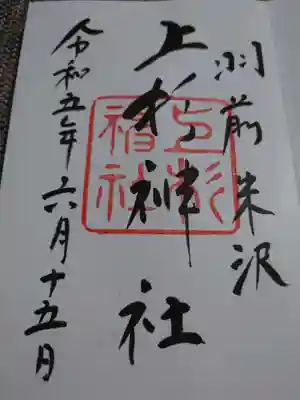 羽前米沢
上杉神社
上杉神社
令和五年六月十五日